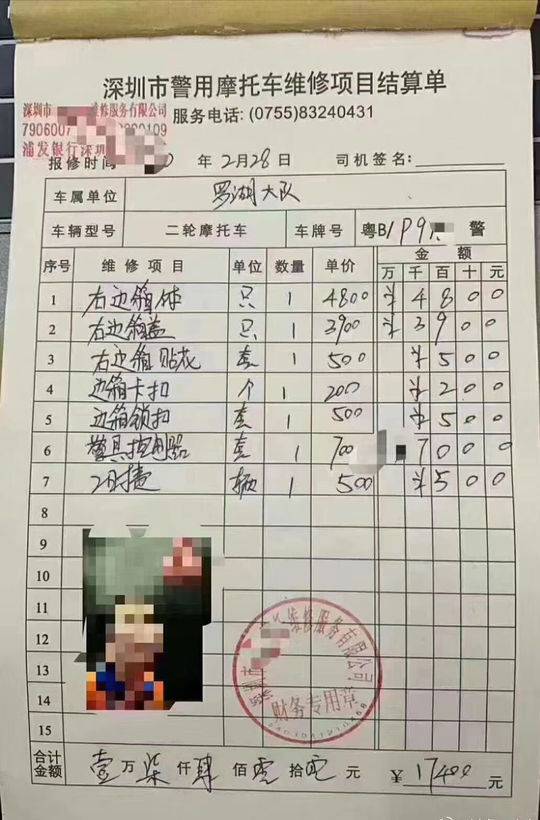 深圳市警用摩托车维修项目结算单
深圳市 维修服务有限公司
服务电话: (0755)83240431
浦发银行深圳
报修时间 年 2月28日 司机签名:
车属单位 罗湖大队
车辆型号 二轮摩托车 车牌号 粤B1P9 警
序号 维修项目 单位 数量 单价 金额
万 千 百 十 元
1 右边箱体 只 1 4800 ¥4800
2 右边箱盖 只 1 3900 ¥3900
3 右边箱贴花 套 1 500 ¥500
4 边箱卡扣 个 1 200 ¥200
5 边箱锁扣 套 1 500 ¥500
6 警具控制器 套 1 700 7000
7 工时费 辆 1 500 ¥500
8
9
10
11
12
13
14
15
维修服务有限公司
财务专用章
合计金额 壹万柒仟肆佰零拾零元 ¥17400